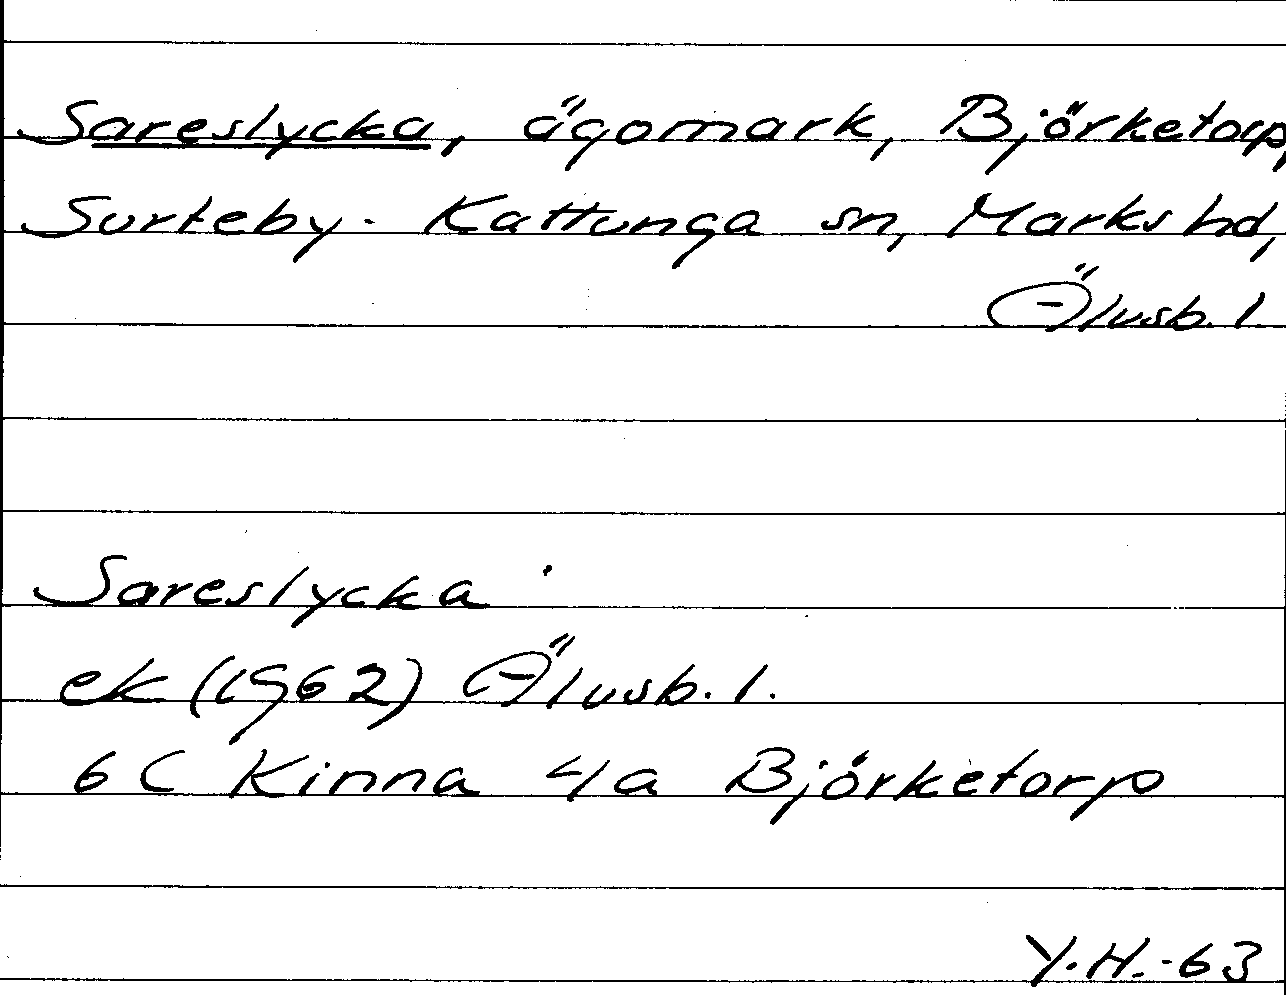 Sareslycka, ägomark, Björketorp,
Surteby-Kattunga sn, Marks hd,
Älvsb. l.
Sareslycka
ek (1962) Älvsb. l.
6 C Kinna 4/a Björketorp
Y.H.-63